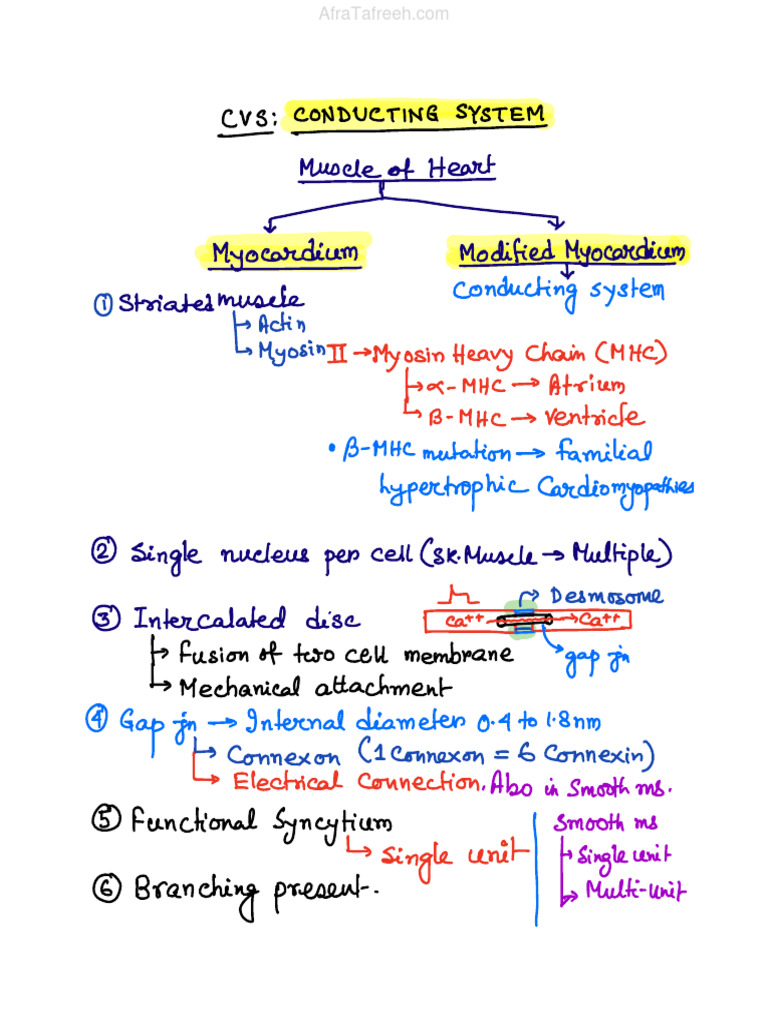 AfraTafreeh.com
CVS: CONDUCTING SYSTEM
Muscle of Heart
Myocardium
Modified Myocardium
Conducting system
① Striated muscle
Actin
Myosin II → Myosin Heavy Chain (MHC)
α-MHC → Atrium
β-MHC → Ventricle
• β-MHC mutation → familial
hypertrophic Cardiomyopathies
② Single nucleus per cell (Sk.Muscle → Multiple)
③ Intercalated disc
Desmosome
Ca++ → Ca++
gap jn
Fusion of two cell membrane
Mechanical attachment
④ Gap jn → Internal diameter 0.4 to 1.8nm
Connexon (1 Connexon = 6 Connexin)
Electrical Connection. Also in Smooth ms.
⑤ Functional Syncytium
Single unit
Smooth ms
Single unit
Multi-unit
⑥ Branching present.